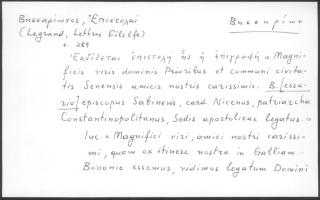 Βησσαρίωνος, Ἐπιστολαί
Βησσαρίων
(Legrand, Lettres Filelfe)
σ. 289
Ἐκδίδεται ἐπιστολὴ ἧς ἡ ἐπιγραφὴ « Magni-
ficis viris dominis Prioribus et communi civita-
tis Senensis amicis nostris carissimis. B. [essa-
rio] episcopus Sabinens, card. Nicenus, patriarcha
Constantinopolitanus, Sedis apostolicae legatus. »
Inc. « Magnifici viri, amici nostri carissi-
mi, quom ex itinere nostro in Galliam
Bononie essemus, vidimus legatum Domini